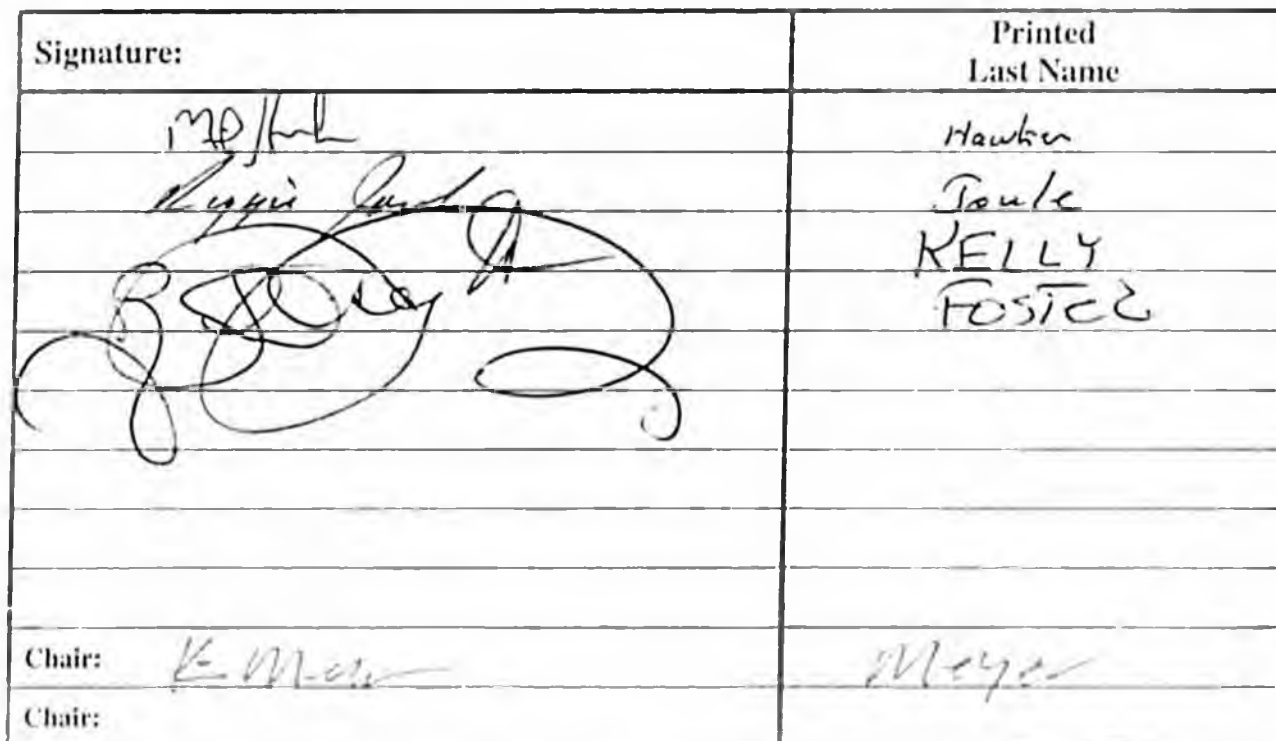 Signature: Printed
Last Name
Hawker
Reggie Joule
KELLY
FOSTER
Chair: K Meyer Meyer
Chair: